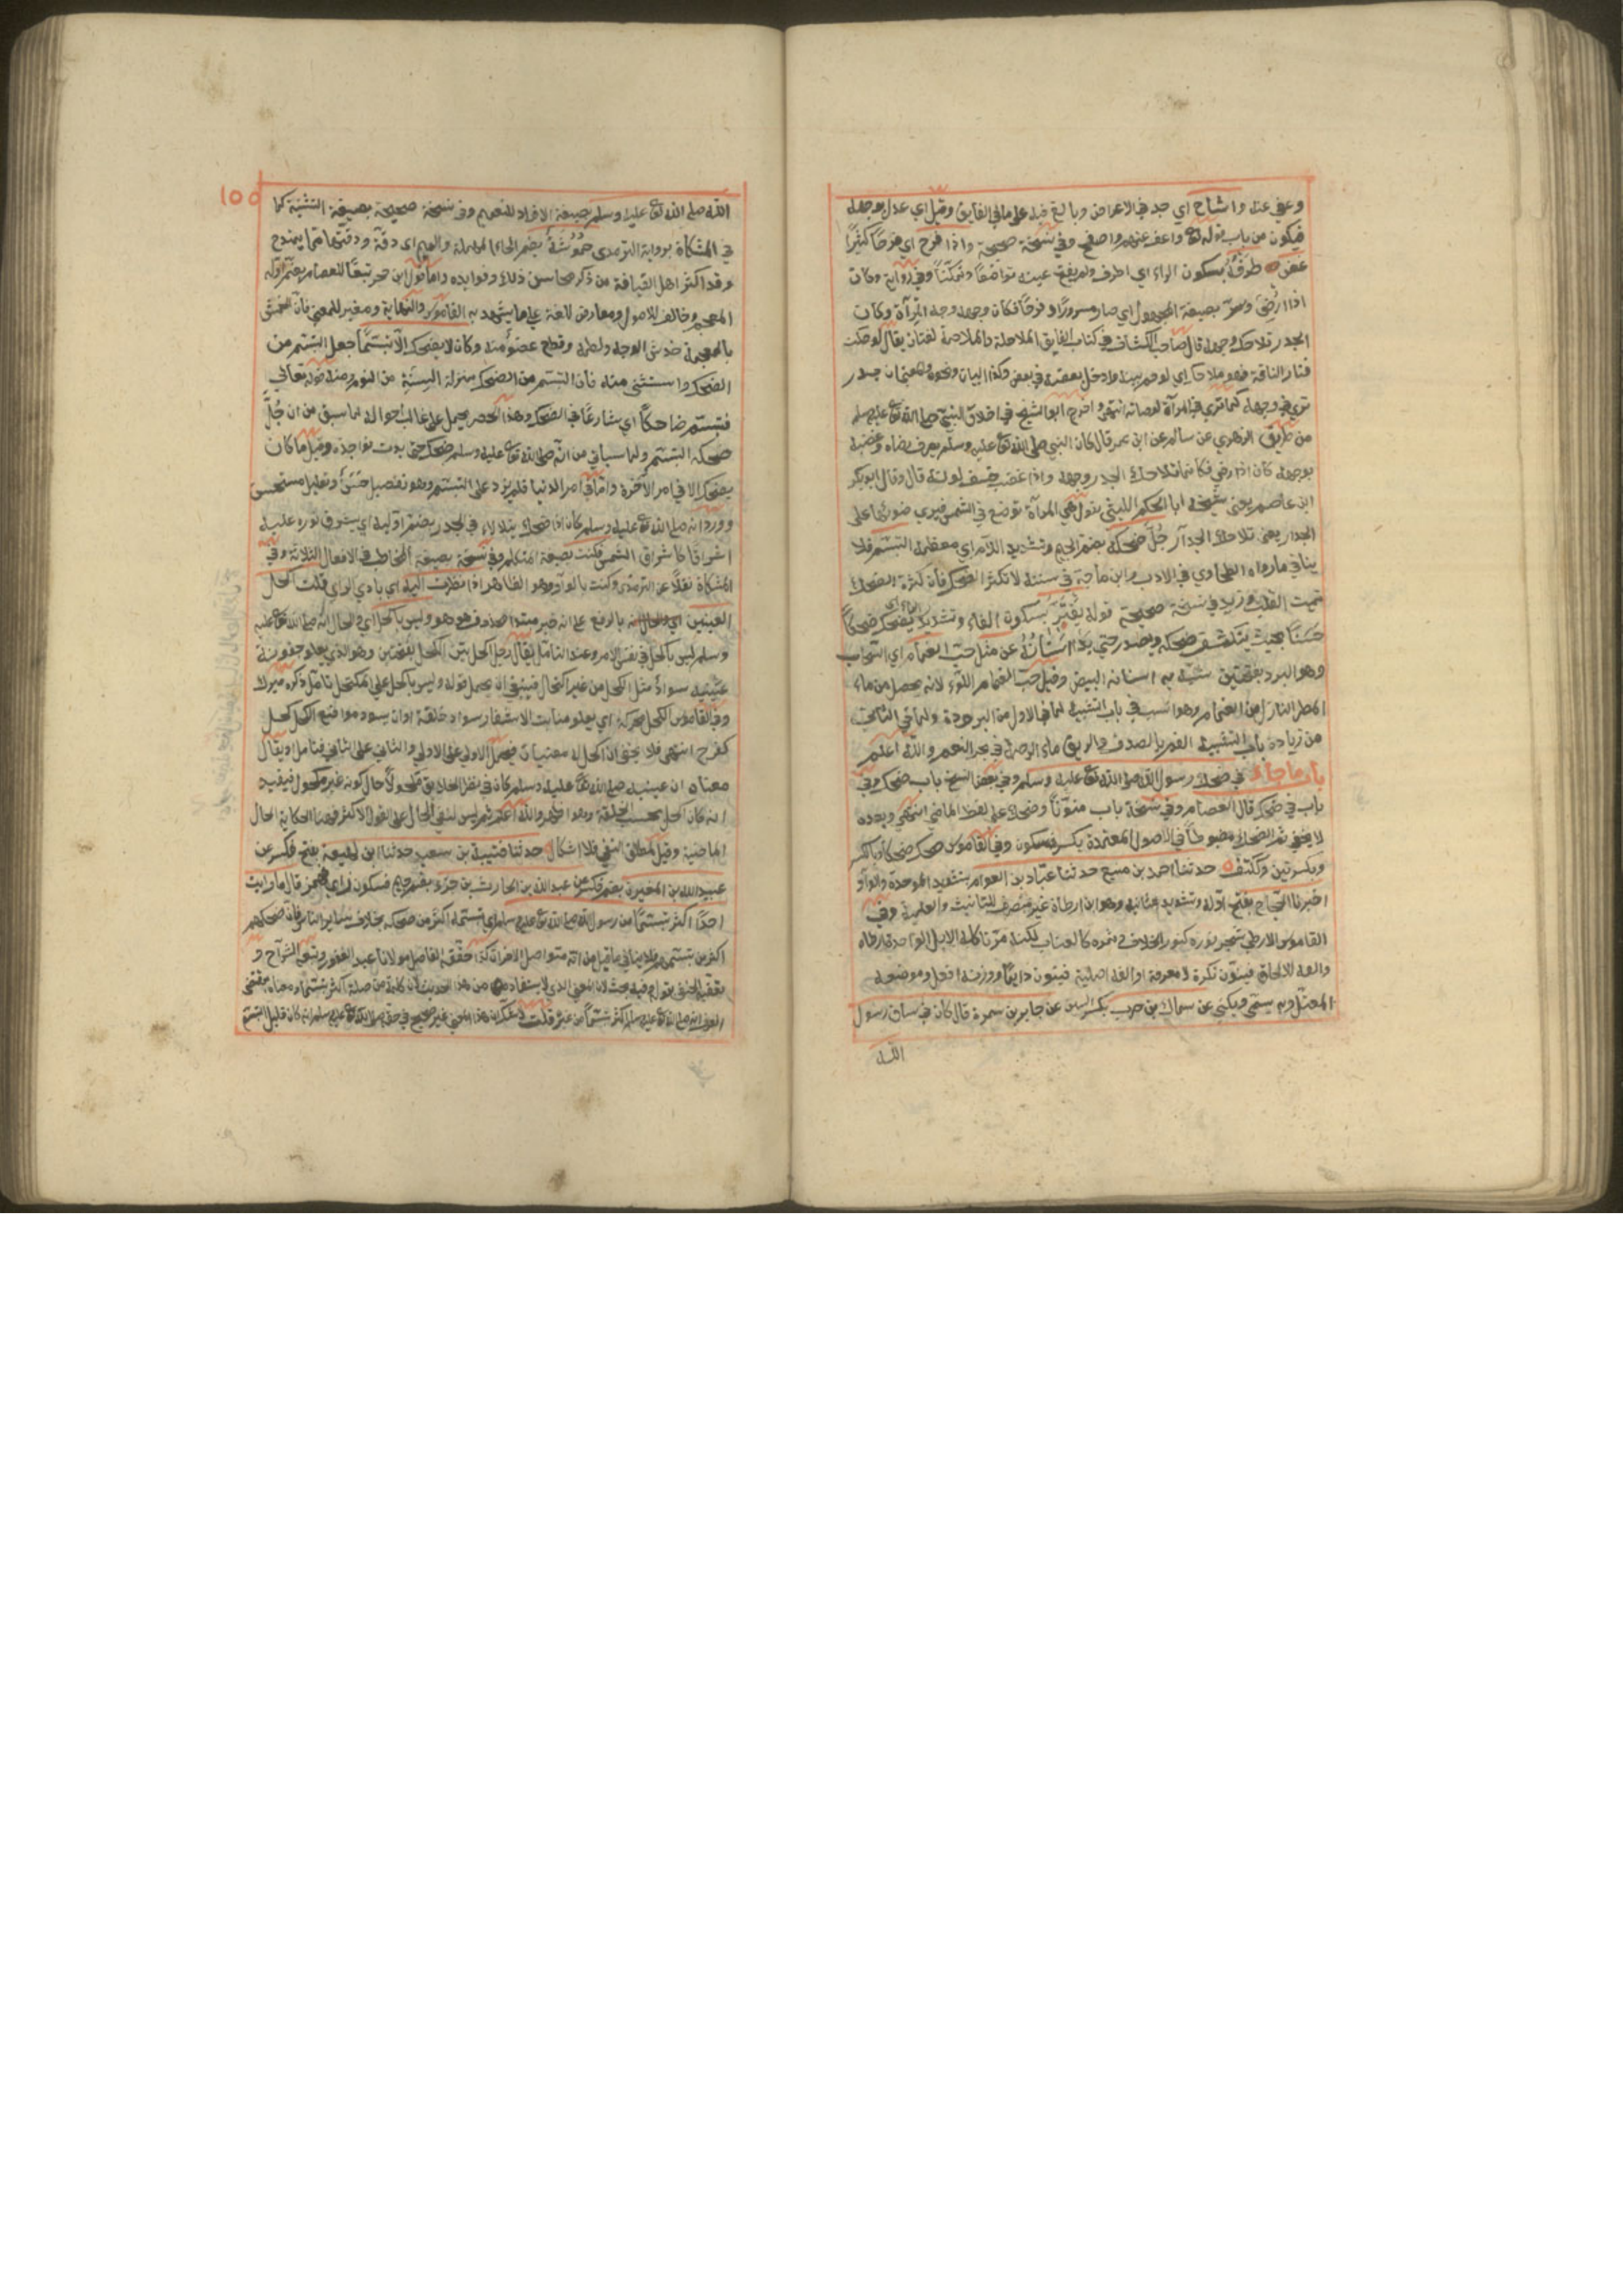 وعفى عنه واشاح اي جد في الاعراض وبالغ فيه على ما في الفايق وقيل اي عدل بوجهه
فيكون من باب قوله تع واعف عنهم واصفح وفي نسخة صحيحة واذا فرح اي فرحا كثيرا
غض طرفه بسكون الراء اي اطرق ولم يفتح عينه تواضعا وتمكنا وفي رواية وكان
اذا رضي وسر بصيغة المجهول اي صار مسرورا وفرحا فكان وجهه وجه المرآة وكان
الجدر تلاحك وجهه قال صاحب الكشاف في كتاب الفايق الملاحكة والملاحمة لغتان يقال لوحكت
فقار الناقة فهو ملاحك اي لوحم بينه وادخل بعضه في بعض وكذا البنيان ونحوه والمعنى ان جدر
ترى في وجهه كما ترى في المرآة لوضاءته انتهى واخرج ابو الشيخ في اخلاق النبي صلى الله تع عليه وسلم
من طريق الزهري عن سالم عن ابن عمر قال كان النبي صلى الله تع عليه وسلم يعرف رضاه وغضبه
بوجهه كان اذا رضي فكانما تلاحك الجدر وجهه واذا غضب خسف لونه قال وقال ابو بكر
ابن عاصم يعني شيخه ابا الحكم الليثي يقول هي المرآة توضع في الشمس فيرى ضوءها على
الجدار يعني تلاحك الجدار جل ضحكه بضم الجيم وتشديد اللام اي معظمه التبسم فلا
ينافي ما رواه الطحاوي في الادب وابن ماجة في سننه لا تكثر الضحك فان كثرة الضحك
تميت القلب وزيد في نسخة صحيحة قوله يفتر بسكون الفاء وتشديد الراء اي يضحك ضحكا
حسنا بحيث ينكشف ضحكه ويصدر حتى بدا اسنانه عن مثل حب الغمام اي السحاب
وهو البرد بفتحتين شبه به اسنانه البيض وقيل حب الغمام اللؤلؤ لانه يحصل من ماء
المطر النازل من الغمام وهو انسب في باب التشبيه لما في الاول من البرودة ولما في الثاني
من زيادة باب التشبيه الفم بالصدف والريق بماء الرحمة في بحر النعم والله اعلم
باب ما جاء في ضحك رسول الله صلى الله تع عليه وسلم وفي بعض النسخ باب ضحك وفي
باب في ضحك قال العصام وفي نسخة باب منونا وضحك على لفظ الماضي انتهى وبعده
لا يخفى ثم الضحك مضبوط في الاصول المعتمدة بكسر فسكون وفي القاموس ضحك ضحكا بالكسر
وبكسرتين وككتف حدثنا احمد بن منيع حدثنا عباد بن العوام بتشديد الموحدة والواو
اخبرنا الحجاج بفتح اوله وتشديد ثانيه وهو ابن ارطاة غير منصرف للتانيث والعلمية وفي
القاموس الارطى شجر نوره كنور الخلاف وثمره كالعناب لكنه مر تاكله الابل الواحدة ارطاة
والفه للالحاق فينون نكرة لا معرفة او الفه اصلية فينون دايما ووزنه افعل وموضعه
المعتل وبه سمي ويكنى عن سماك بن حرب بكسر السين عن جابر بن سمرة قال كان في ساق رسول
الله
١٥٥
الله صلى الله تع عليه وسلم بصيغة الافراد للتعميم وفي نسخة صحيحة بصيغة التثنية كما
في المشكاة برواية الترمذي حموشة بضم الحاء المهملة والميم اي دقة ودقتهما مما يمتدح
وقد اكثر اهل القيافة من ذكر محاسن ذلك وفوايده واما قول ابن حجر تبعا للعصام بضم اوله
المعجم وخالف للاصول ومعارض للغة على ما يشهد به القاموس والنهاية ومغير للمعنى فان الخمش
بالمعجمة خدش الوجه ولطمه وقطع عضو منه وكان لا يضحك الا تبسما جعل التبسم من
الضحك واستثني منه فان التبسم من الضحك بمنزلة السنة من النوم ومنه قوله تعالى
فتبسم ضاحكا اي شارعا في الضحك وهذا الحصر يحمل على غالب احواله لما سبق من ان جل
ضحكه التبسم ولما سياتي من انه صلى الله تع عليه وسلم ضحك حتى بدت نواجذه وقيل ما كان
يضحك الا في امر الآخرة واما في امر الدنيا فلم يزد على التبسم وهو تفصيل حسن وتعليل مستحسن
وورد انه صلى الله تع عليه وسلم كان اذا ضحك يتلالا في الجدر بضم اوليه اي يشرق نوره عليه
اشراقا كاشراق الشمس فكنت بصيغة المتكلم وفي نسخة بصيغة المخاطب في الافعال الثلاثة وفي
المشكاة نقلا عن الترمذي وكنت بالواو وهو الظاهر اذا نظرت اليه اي بادي الراي قلت اكحل
العينين بالرفع على انه خبر مبتدا محذوف هو وهو وليس باكحل اي والحال انه صلى الله تع عليه
وسلم ليس باكحل في نفس الامر وعند التامل يقال رجل اكحل بين الكحل بفتحتين وهو الذي يعلو جفون
عينيه سواد مثل الكحل من غير اكتحال فينبغي ان يحمل قوله وليس باكحل على المكتحل تامل ذكره ميرك
وفي القاموس الكحل محركة اي يعلو منابت الاشفار سواد خلقة او ان يسود مواضع الكحل كحل
كفرح انتهى فلا يخفى ان الكحل له معنيان فيحمل الاول على الاول والثاني على الثاني فتامل او يقال
معناه ان عينيه صلى الله تع عليه وسلم كان في نظر الخلايق مكحولا حال كونه غير مكحول فيفيد
انه كان اكحل بحسب الخلقة وهو اظهر والله اعلم ثم ليس لنفي الحال على القول الاكثر فهنا لحكاية الحال
الماضية وقيل لمطلق النفي فلا اشكال حدثنا قتيبة بن سعيد حدثنا ابن لهيعة بفتح فكسر عن
عبيد الله بن المغيرة بضم فكسر عن عبد الله بن الحارث بن جزء بفتح جيم فسكون زاي فهمز قال ما رايت
احدا اكثر تبسما من رسول الله صلى الله تع عليه وسلم اي تبسمه اكثر من ضحكه بخلاف ساير الناس فان ضحكهم
اكثر من تبسمهم فلا ينافي ما قيل من انه متواصل الاحزان كذا حققه الفاضل مولانا عبد الغفور وتبعه الشراح و